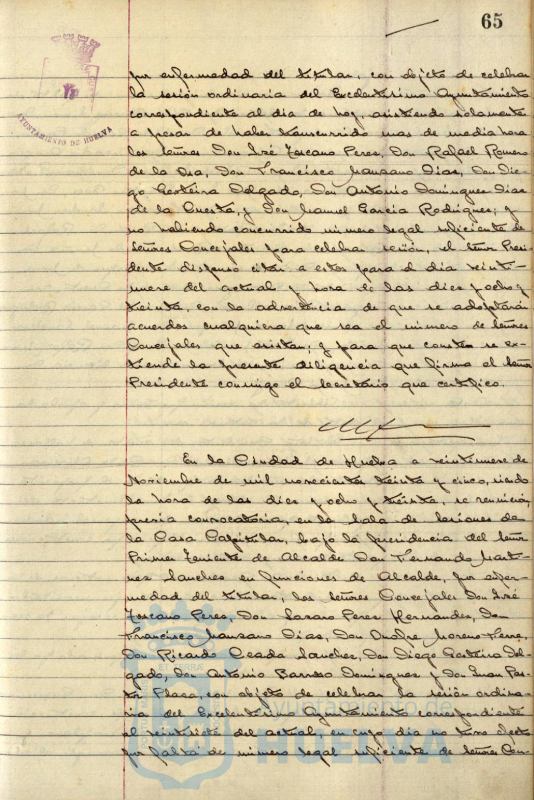 65
AYUNTAMIENTO DE HUELVA
por enfermedad del titular, con objeto de celebrar
la sesión ordinaria del Excelentísimo Ayuntamiento
correspondiente al dia de hoy, asistiendo solamente
a pesar de haber transcurrido mas de media hora
los señores Don José Toscano Peres, Don Rafael Romero
de la Osa, Don Francisco Manzano Dias, Don Die-
go Gorteira Delgado, Don Antonio Dominguez Dias
de la Cuesta, y Don Manuel Garcia Rodriguez; y
no habiendo concurrido número legal suficiente de
señores Concejales para celebrar sesión, el señor Presi-
dente dispuso citar a estos para el dia veinti-
nueve del actual y hora de las diez y ocho y
treinta, con la advertencia de que se adoptarán
acuerdos cualquiera que sea el número de señores
Concejales que asistan; y para que conste se ex-
tiende la presente diligencia que firma el señor
Presidente conmigo el Secretario que certifico.
En la Ciudad de Huelva a veintinueve de
Noviembre de mil novecientos treinta y cinco, siendo
la hora de las diez y ocho y treinta, se reunieron,
previa convocatoria, en la Sala de Sesiones de
la Casa Capitular, bajo la presidencia del señor
Primer Teniente de Alcalde Don Fernando Marti-
nez Sanchez en funciones de Alcalde, por enfer-
medad del titular, los señores Concejales Don José
Toscano Peres, Don Lazaro Perez Hernandez, Don
Francisco Manzano Dias, Don Onofre Moreno
Don Ricardo Ceada Sanchez, Don Diego Gorteira Del-
gado, Don Antonio Barroso Dominguez y Don Juan
Plaza, con objeto de celebrar la sesión ordina-
ria del Excelentísimo Ayuntamiento correspondiente
al veintisiete del actual, en cuyo dia no tuvo efecto
por falta de número legal suficiente de señores Con-
Ayuntamiento de
HUELVA